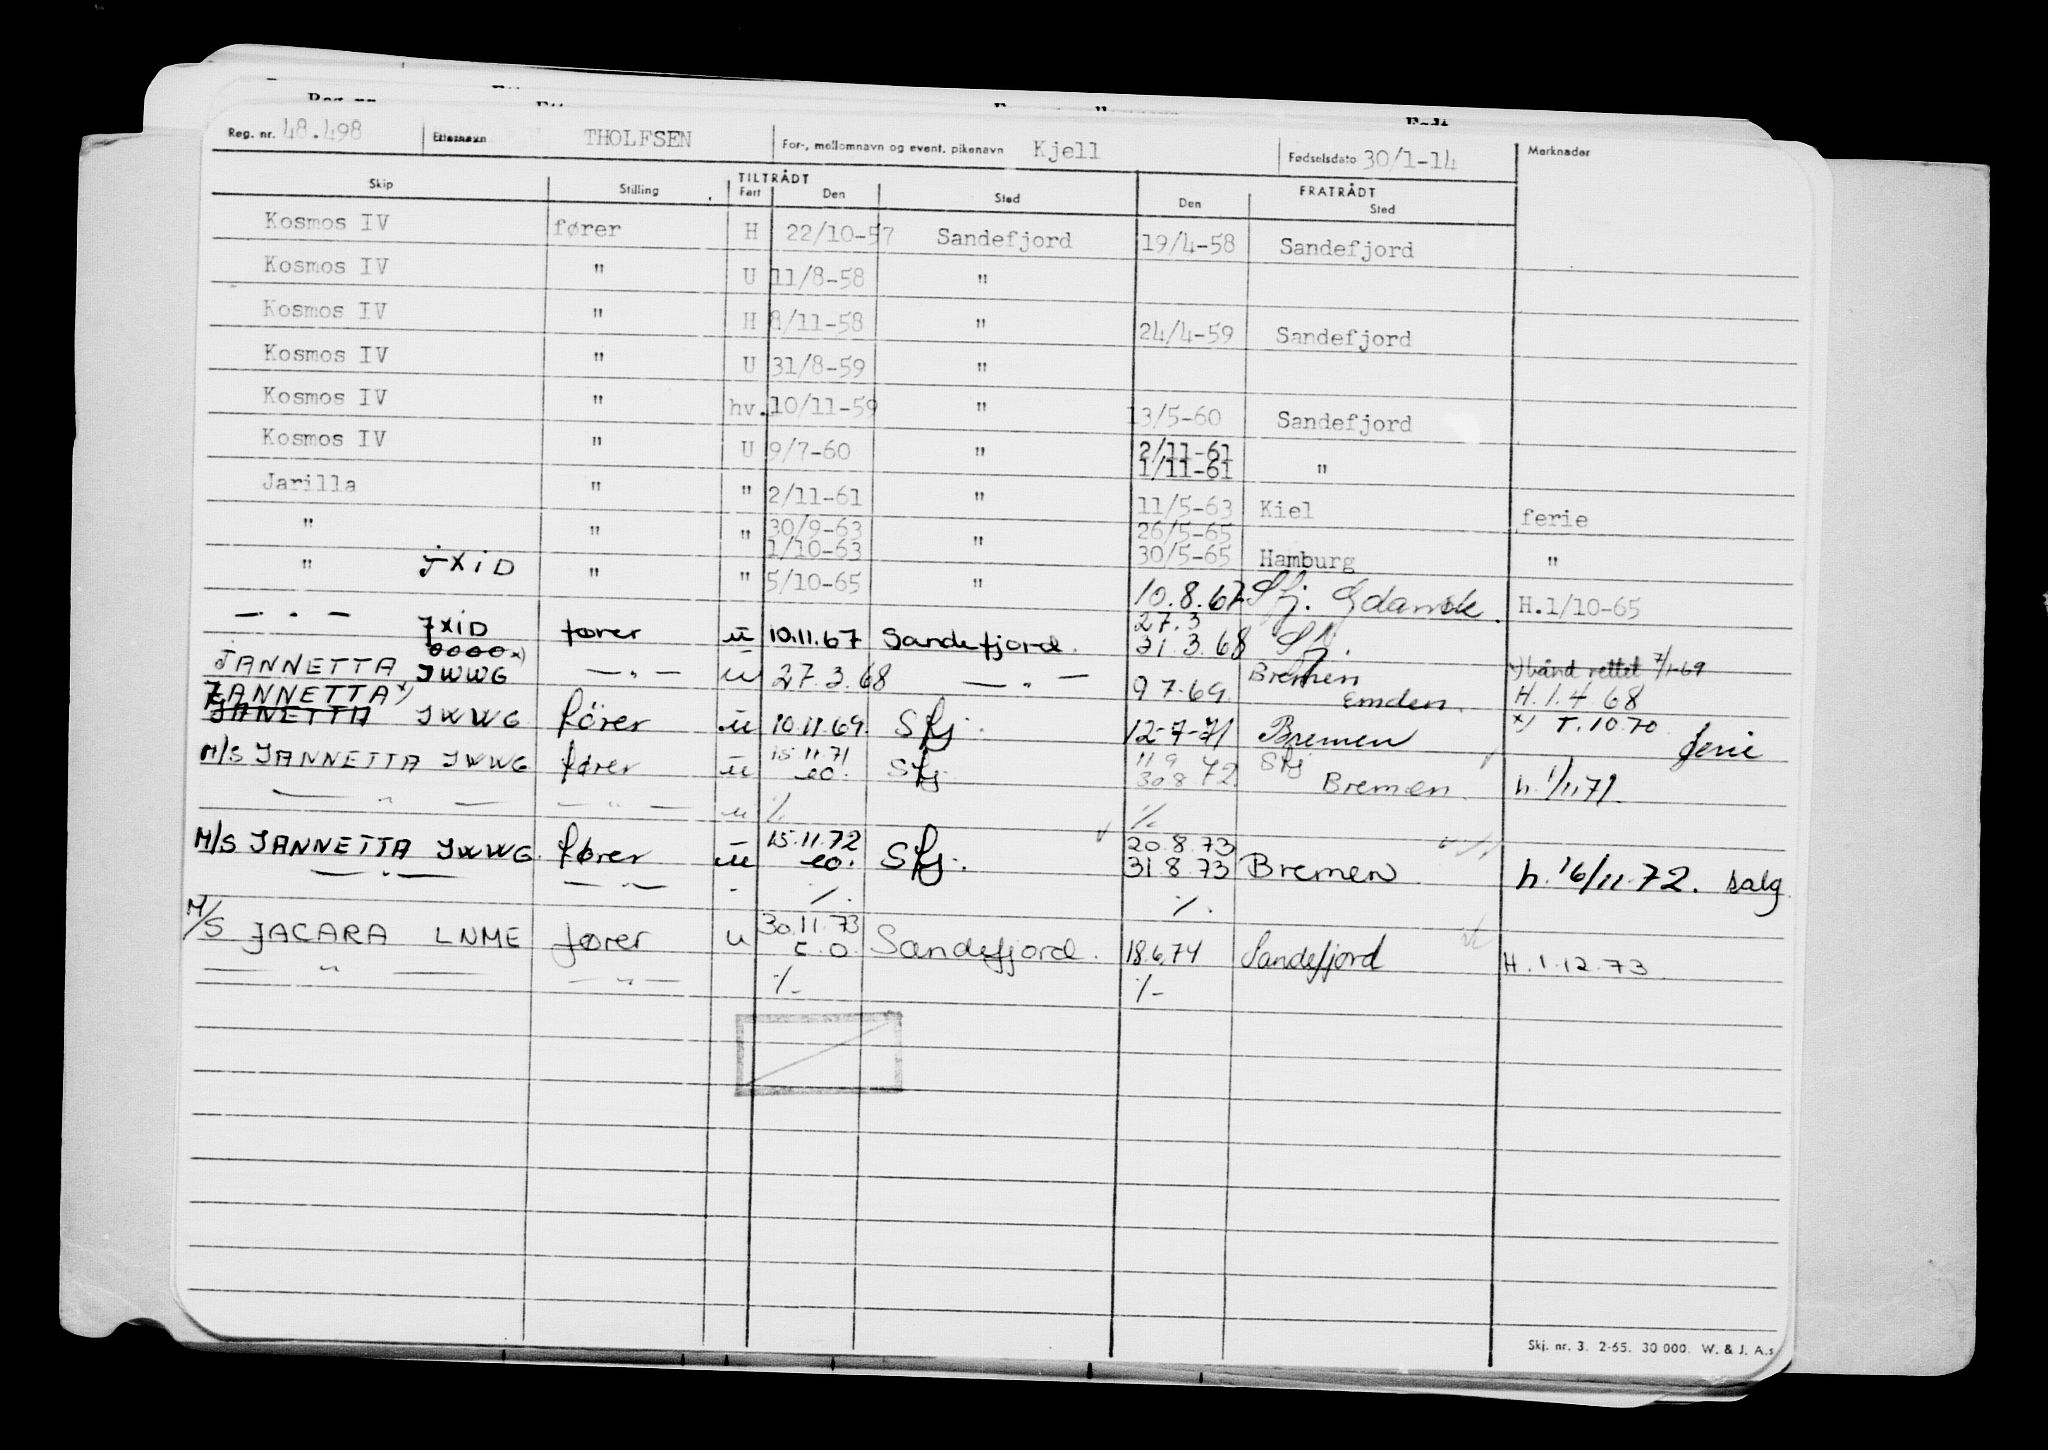 Reg. nr. 48.498 Etternavn THOLFSEN For-, mellomnavn og event. pikenavn Kjell Fødselsdato 30/1-14 Merknader
TILTRÅDT FRATRÅDT
Skip Stilling Fart Den Sted Den Sted
Kosmos IV fører H 22/10-57 Sandefjord 19/4-58 Sandefjord
Kosmos IV " U 11/8-58 "
Kosmos IV " H 8/11-58 " 24/4-59 Sandefjord
Kosmos IV " U 31/8-59 "
Kosmos IV " hv. 10/11-59 " 13/5-60 Sandefjord
Kosmos IV " U 9/7-60 " 2/11-61
1/11-61 "
Jarilla " " 2/11-61 " 11/5-63 Kiel ferie
" " " 30/9-63 26/5-65
1/10-63 " 30/5-65 Hamburg "
" JXID " " 5/10-65 " 10.8.67 Sfj. Gdansk. H.1/10-65
— " — JXID fører u 10.11.67 Sandefjord. 27.3
31.3.68 Sfj.
JANNETTA JWWG — " — u 27.3.68 — " — 9.7.69. Bremen Emden. x) bånd rettet 7/1-69
H.1.4 68
JANNETTA x)
JANETTA JWWG fører u 10.11.69. Sfj. 12-7-71 Bremen x) T.10.70. ferie
M/S JANNETTA JWWG fører u 15.11.71 eo. Sfj. 11 9
30.8.72. Sfj Bremen. h. 1/11.71.
— " — — " — u ./. ./.
M/S JANNETTA JWWG. fører u 15.11.72 eo. Sfj. 20.8.73
31.8.73 Bremen h. 16/11.72. salg
— " — — " — " ./. ./.
M/S JACARA LNME fører u 30.11.73 E.O. Sandefjord. 18.6.74 Sandefjord H.1.12.73.
— " — — " — ./. ./.
Skj. nr. 3. 2-65. 30 000. W. & J. A.s